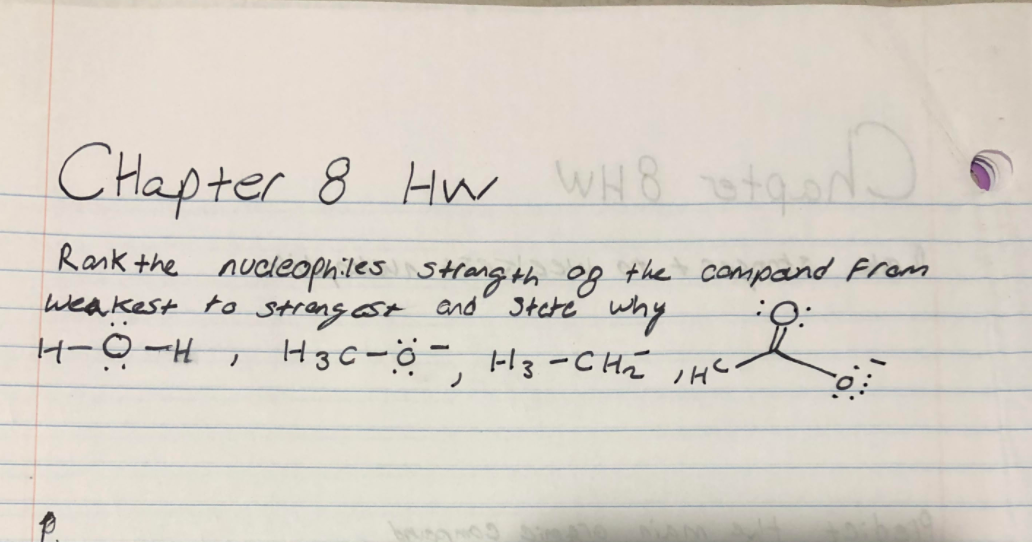 CHapter 8 HW
Rank the nucleophiles strength of the compound From
weakest to strongest and State why
H-O-H , H3C-O⁻ , H3-CH2⁻ , HC O O⁻